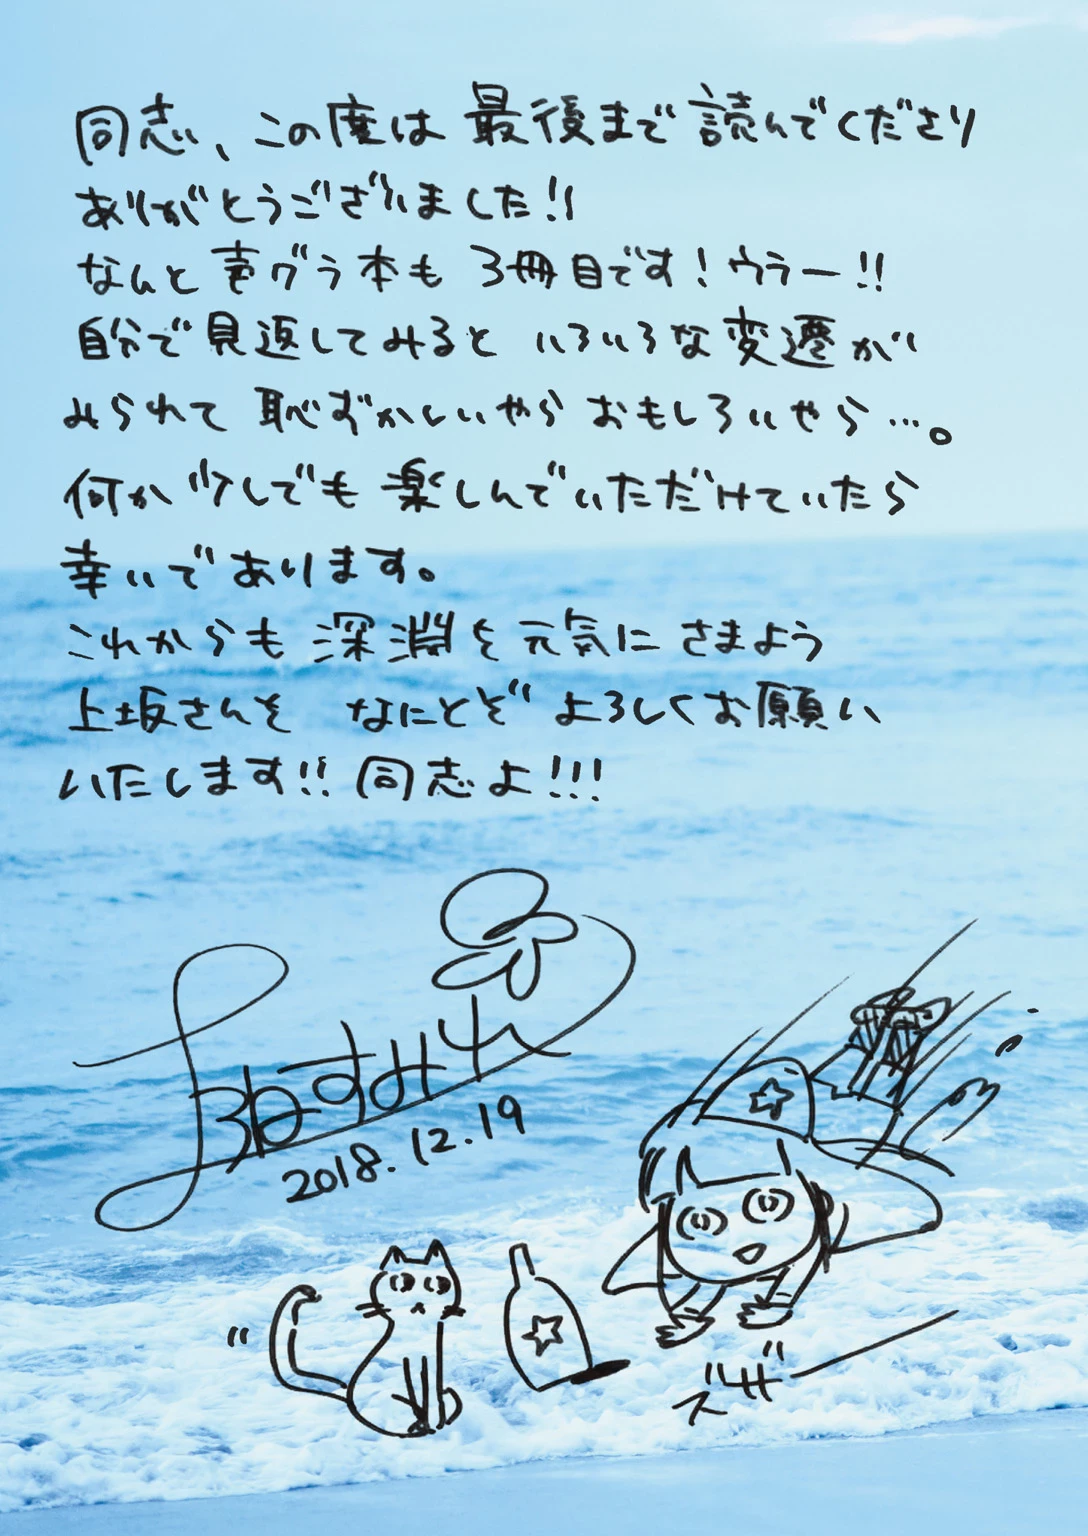 同志、この度は最後まで読んでくださり
ありがとうございました!!
なんと声グラ本も3冊目です!ウラー!!
自分で見返してみると いろいろな変遷が
みられて 恥ずかしいやら おもしろいやら…。
何か少しでも楽しんでいただけていたら
幸いであります。
これからも深淵を元気にさまよう
上坂さんを なにとぞ よろしくお願い
いたします!! 同志よ!!!
すみれ
2018.12.19
ズザー